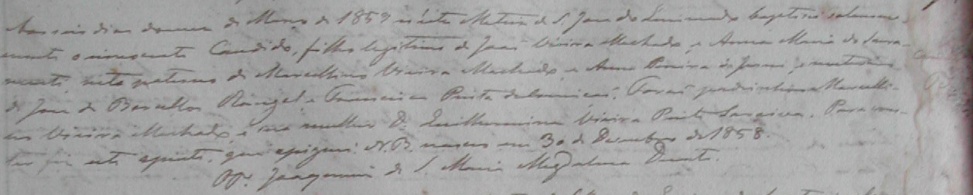 Aos seis dias do mez de Março de 1859 n'esta Matriz de S. João do Limoeiro baptisei solemne-
mente o innocente Candido, filho legitimo de João Vieira Machado e Anna Maria do Sacra-
mento neto paterno de Marcellino Vieira Machado e Anna Pereira de Jesus, e materno
de João de Barcellos Rangel e Francisca Pinta da Forão padrinhos Marcelli-
no Vieira Machado e sua mulher D. Guilhermina Vieira Pinto Para cons-
tar fiz este que assignei. N.B. nasceu em 30 de Dezembro de 1858.
Joaquim de S. Maria Magdalena Duarte.